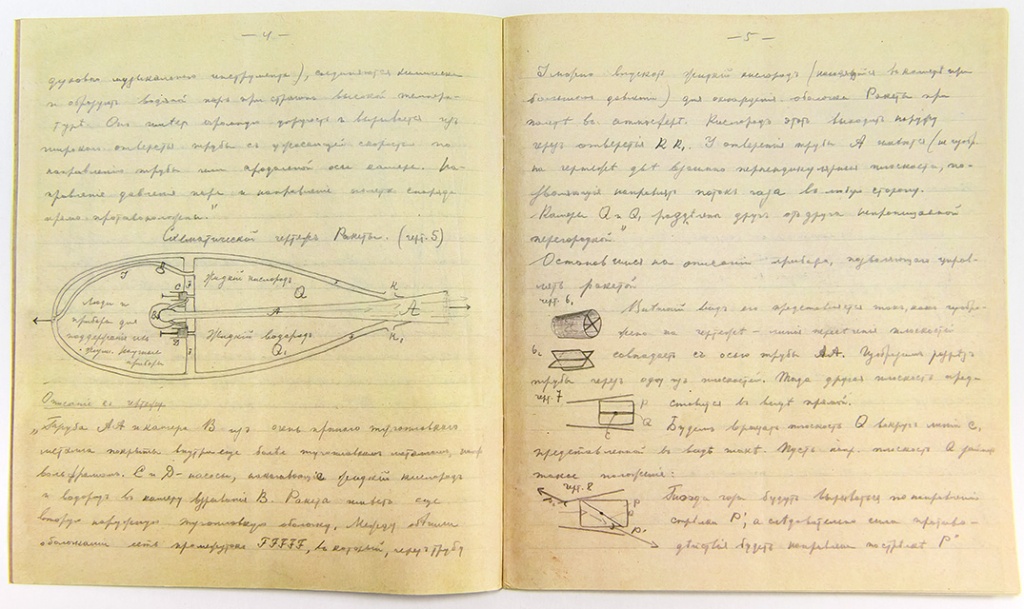 — 4 —
духовых музыкальных инструментов), соединяются химически
и образуют водяной пар при страшно высокой темпера-
турѣ. Он имѣет огромную упругость и вырывается из
широкого отверстия трубы съ ужасающей скоростью по
направлению трубы или продольной оси камеры. На-
правление давления пара и направление полета снаряда
прямо противоположны."
Схематический чертежъ Ракеты. (черт. 5)
Жидкий кислородъ
Люди и
приборы для
Q
A
A
Жидкий водородъ
Q₁
Описание къ чертежу.
„Труба АА и камера В изъ очень прочного тугоплавкого
металла покрыты внутри еще более тугоплавким материалом, напр.
вольфрамом. С и D - насосы, накачивающие жидкий кислород
и водородъ въ камеру взрывания В. Ракета имѣетъ еще
вторую наружную тугоплавкую оболочку. Между обѣими
оболочками есть промежуток FFFFF, в который, через трубу
— 5 —
жидкий кислородъ
большим давлением) для охлаждения оболочки Ракеты при
полетѣ въ атмосферѣ. Кислородъ этот выходит наружу
черезъ отверстѣя К К₁. У отверстия трубы А
на чертеже) двѣ взаимно перпендикулярные плоскости, по-
зволяющие направлять поток газа въ любую сторону.
Камеры Q и Q₁ раздѣлены друг от друга непроницаемой
перегородкой"
Остановимся на описании прибора, позволяющего управ-
лять ракетой
черт. 6.
Внѣшний видъ его представляется таким, как изобра-
жено на чертеже - линия пересечения плоскостей
6.
совпадает съ осью трубы АА. Изобразим разрѣзъ
трубы через одну из плоскостей. Тогда другая плоскость пред-
черт. 7
ставится въ видѣ прямой.
P
Q
C
Будем вращать плоскость Q вокруг линии С,
представленной въ видѣ точки. Пусть напр. плоскость Q
такое положение:
черт. 8
P
P₁
Тогда газы будут вырываться по направлению
стрелки Р', а следовательно сила противо-
действия будет направлена по стрелке Р"